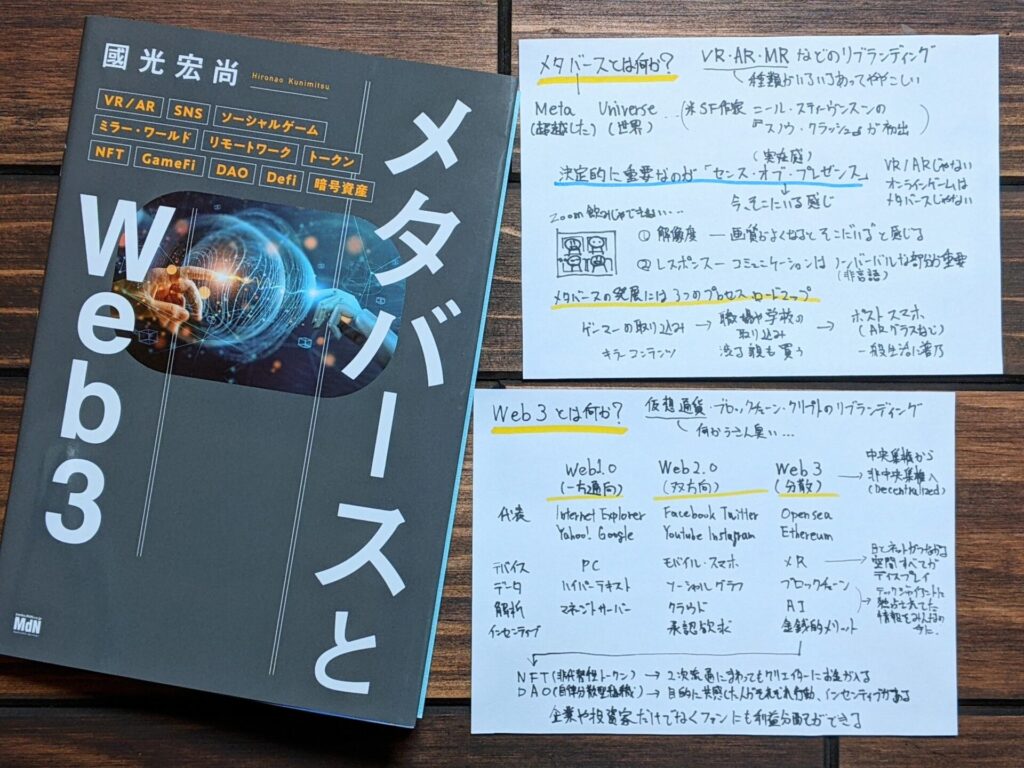 國光宏尚
Hironao Kunimitsu
VR/AR SNS ソーシャルゲーム
ミラー・ワールド リモートワーク トークン
NFT GameFi DAO Defi 暗号資産
メタバースと
Web3
MdN
メタバースとは何か? VR・AR・MRなどのリブランディング
種類がいろいろあってややこしい
Meta Universe
(超越した)(世界)…
※SF作家 ニール・スティーヴンスンの
『スノウ・クラッシュ』が初出
(実在感)
決定的に重要なのが「センス・オブ・プレゼンス」
今、そこにいる感じ
VR/ARじゃない
オンラインゲームは
メタバースじゃない
Zoom飲みじゃできない…
① 解像度 ― 画質がよくなるとそこにいると感じる
② レスポンス ― コミュニケーションはノンバーバルな部分が重要
(非言語)
メタバースの発展には3つのプロセス・ロードマップ
ゲーマーの取り込み → 職場や学校の取り込み → ポストスマホ
(ARグラスなど)
キラーコンテンツ 渋る親も買う 一般生活に普及
Web3とは何か? 仮想通貨・ブロックチェーン・クリプトのリブランディング
何かうさん臭い…
Web1.0 Web2.0 Web3
(一方通向) (双方向) (分散)
→ 中央集権から
非中央集権へ
(Decentralized)
代表 Internet Explorer Facebook Twitter Opensea
Yahoo! Google Youtube Instagram Ethereum
デバイス PC モバイル・スマホ XR
データ ハイパーテキスト ソーシャルグラフ ブロックチェーン
解析 マネジメントサーバー クラウド AI
インセンティブ 承認欲求 金銭的メリット
空間すべてが
ディスプレイ
テックジャイアントに
独占されてた
情報をみんなの
NFT(非代替性トークン) → 2次流通にまわってもクリエイターにお金が入る
DAO(自律分散型組織) → 目的に共感した人がそれぞれ行動、インセンティブがある
企業や投資家だけでなくファンにも利益分配ができる